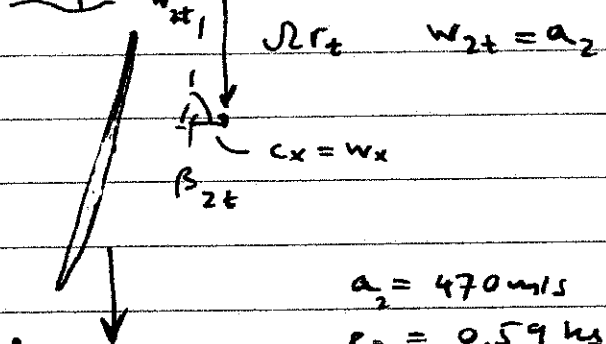 w₂ₜ
Ωrₜ w₂ₜ = a₂
cₓ = wₓ
β₂ₜ
a₂ = 470 m/s
= 0.59